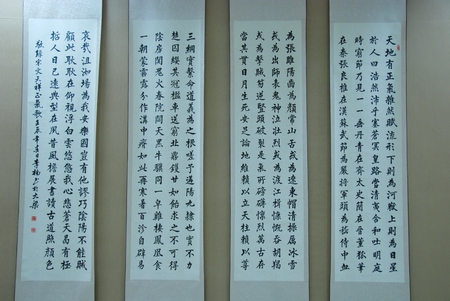 天地有正氣雜然賦流形下則為河嶽上則為日星
於人曰浩然沛乎塞蒼冥皇路當清夷含和吐明庭
時窮節乃見一一垂丹青在齊太史簡在晉董狐筆
在秦張良椎在漢蘇武節為嚴將軍頭為嵇侍中血
為張睢陽齒為顏常山舌或為遼東帽清操厲冰雪
或為出師表鬼神泣壯烈或為渡江楫慷慨吞胡羯
或為擊賊笏逆豎頭破裂是氣所磅礴凜烈萬古存
當其貫日月生死安足論地維賴以立天柱賴以尊
三綱實繫命道義為之根嗟予遘陽九隸也實不力
楚囚纓其冠檻車送窮北鼎鑊甘如飴求之不可得
陰房闃鬼火春院閟天黑牛驥同一皁雞棲鳳凰食
一朝蒙霧露分作溝中瘠如此再寒暑百沴自辟易
哀哉沮洳場為我安樂國豈有他謬巧陰陽不能賊
顧此耿耿在仰視浮白雲悠悠我心悲蒼天曷有極
哲人日已遠典型在夙昔風簷展書讀古道照顏色
敬錄宋文天祥正氣歌壬辰年於大梁